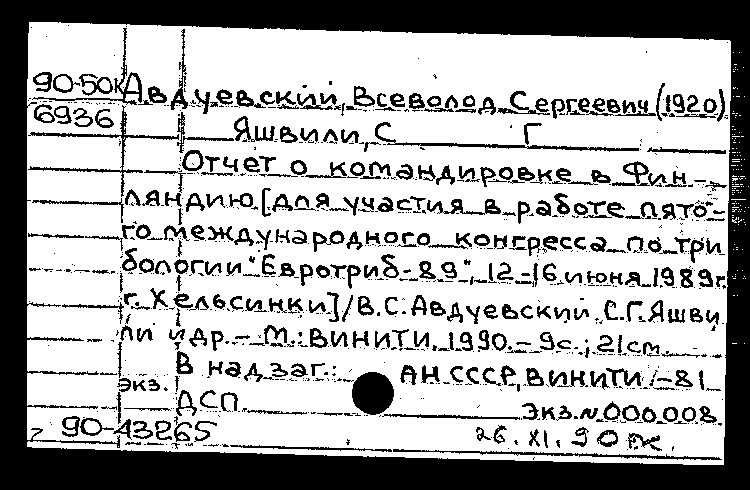 90-50к Авдуевский, Всеволод Сергеевич (1920)
6936 Яшвили, С Г
Отчет о командировке в Фин-
ляндию [для участия в работе пято-
го международного конгресса по три
бологии "Евротриб-89", 12-16 июня 1989г.
г. Хельсинки] / В.С. Авдуевский, С.Г. Яшви
ли и др. - М.: ВИНИТИ, 1990. - 9с.; 21см.
В надзаг.: АН СССР, ВИНИТИ -81
экз.
ДСП. Экз.N 000008
90-43265 26.XI.90